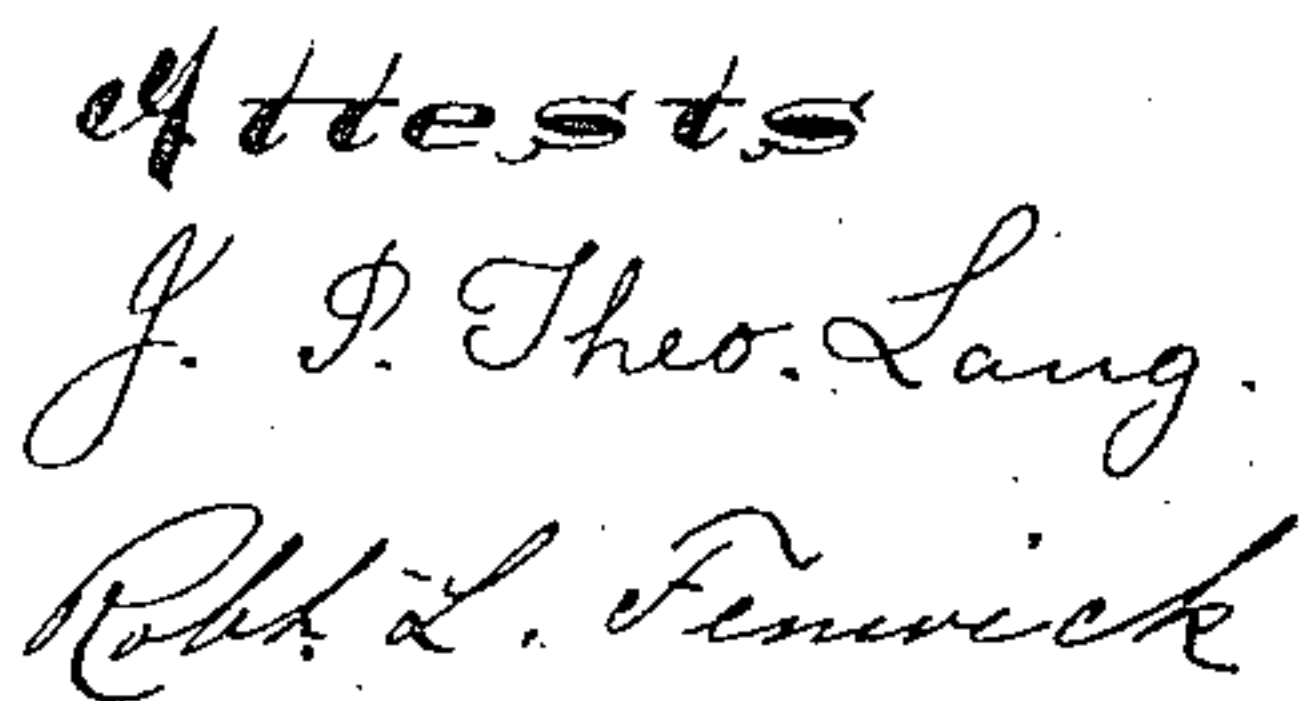 Attests
J. P. Theo. Lang.
Robt. L. Fenwick